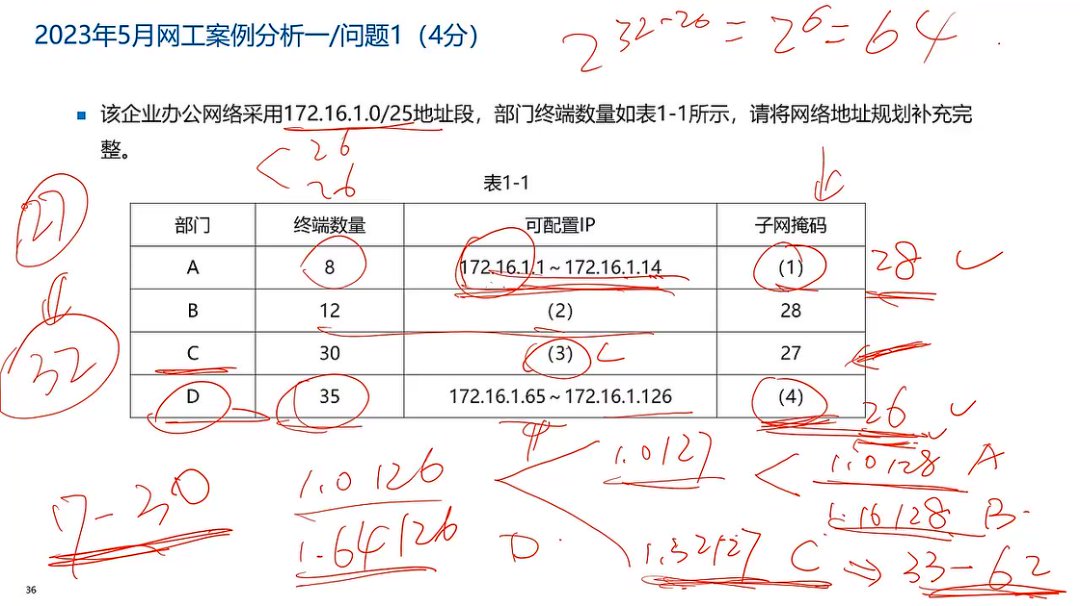 2023年5月网工案例分析一/问题1（4分）
2^32-26 = 2^6 = 64
■ 该企业办公网络采用172.16.1.0/25地址段，部门终端数量如表1-1所示，请将网络地址规划补充完
整。
26
26
表1-1
27
32
部门 终端数量 可配置IP 子网掩码
A 8 172.16.1.1～172.16.1.14 (1) 28
B 12 (2) 28
C 30 (3) 27
D 35 172.16.1.65～172.16.1.126 (4) 26
1.0/26 1.0/27 1.0/28 A
17-30 1.16/28 B
1.64/26 D 1.32/27 C ⇒ 33-62
36